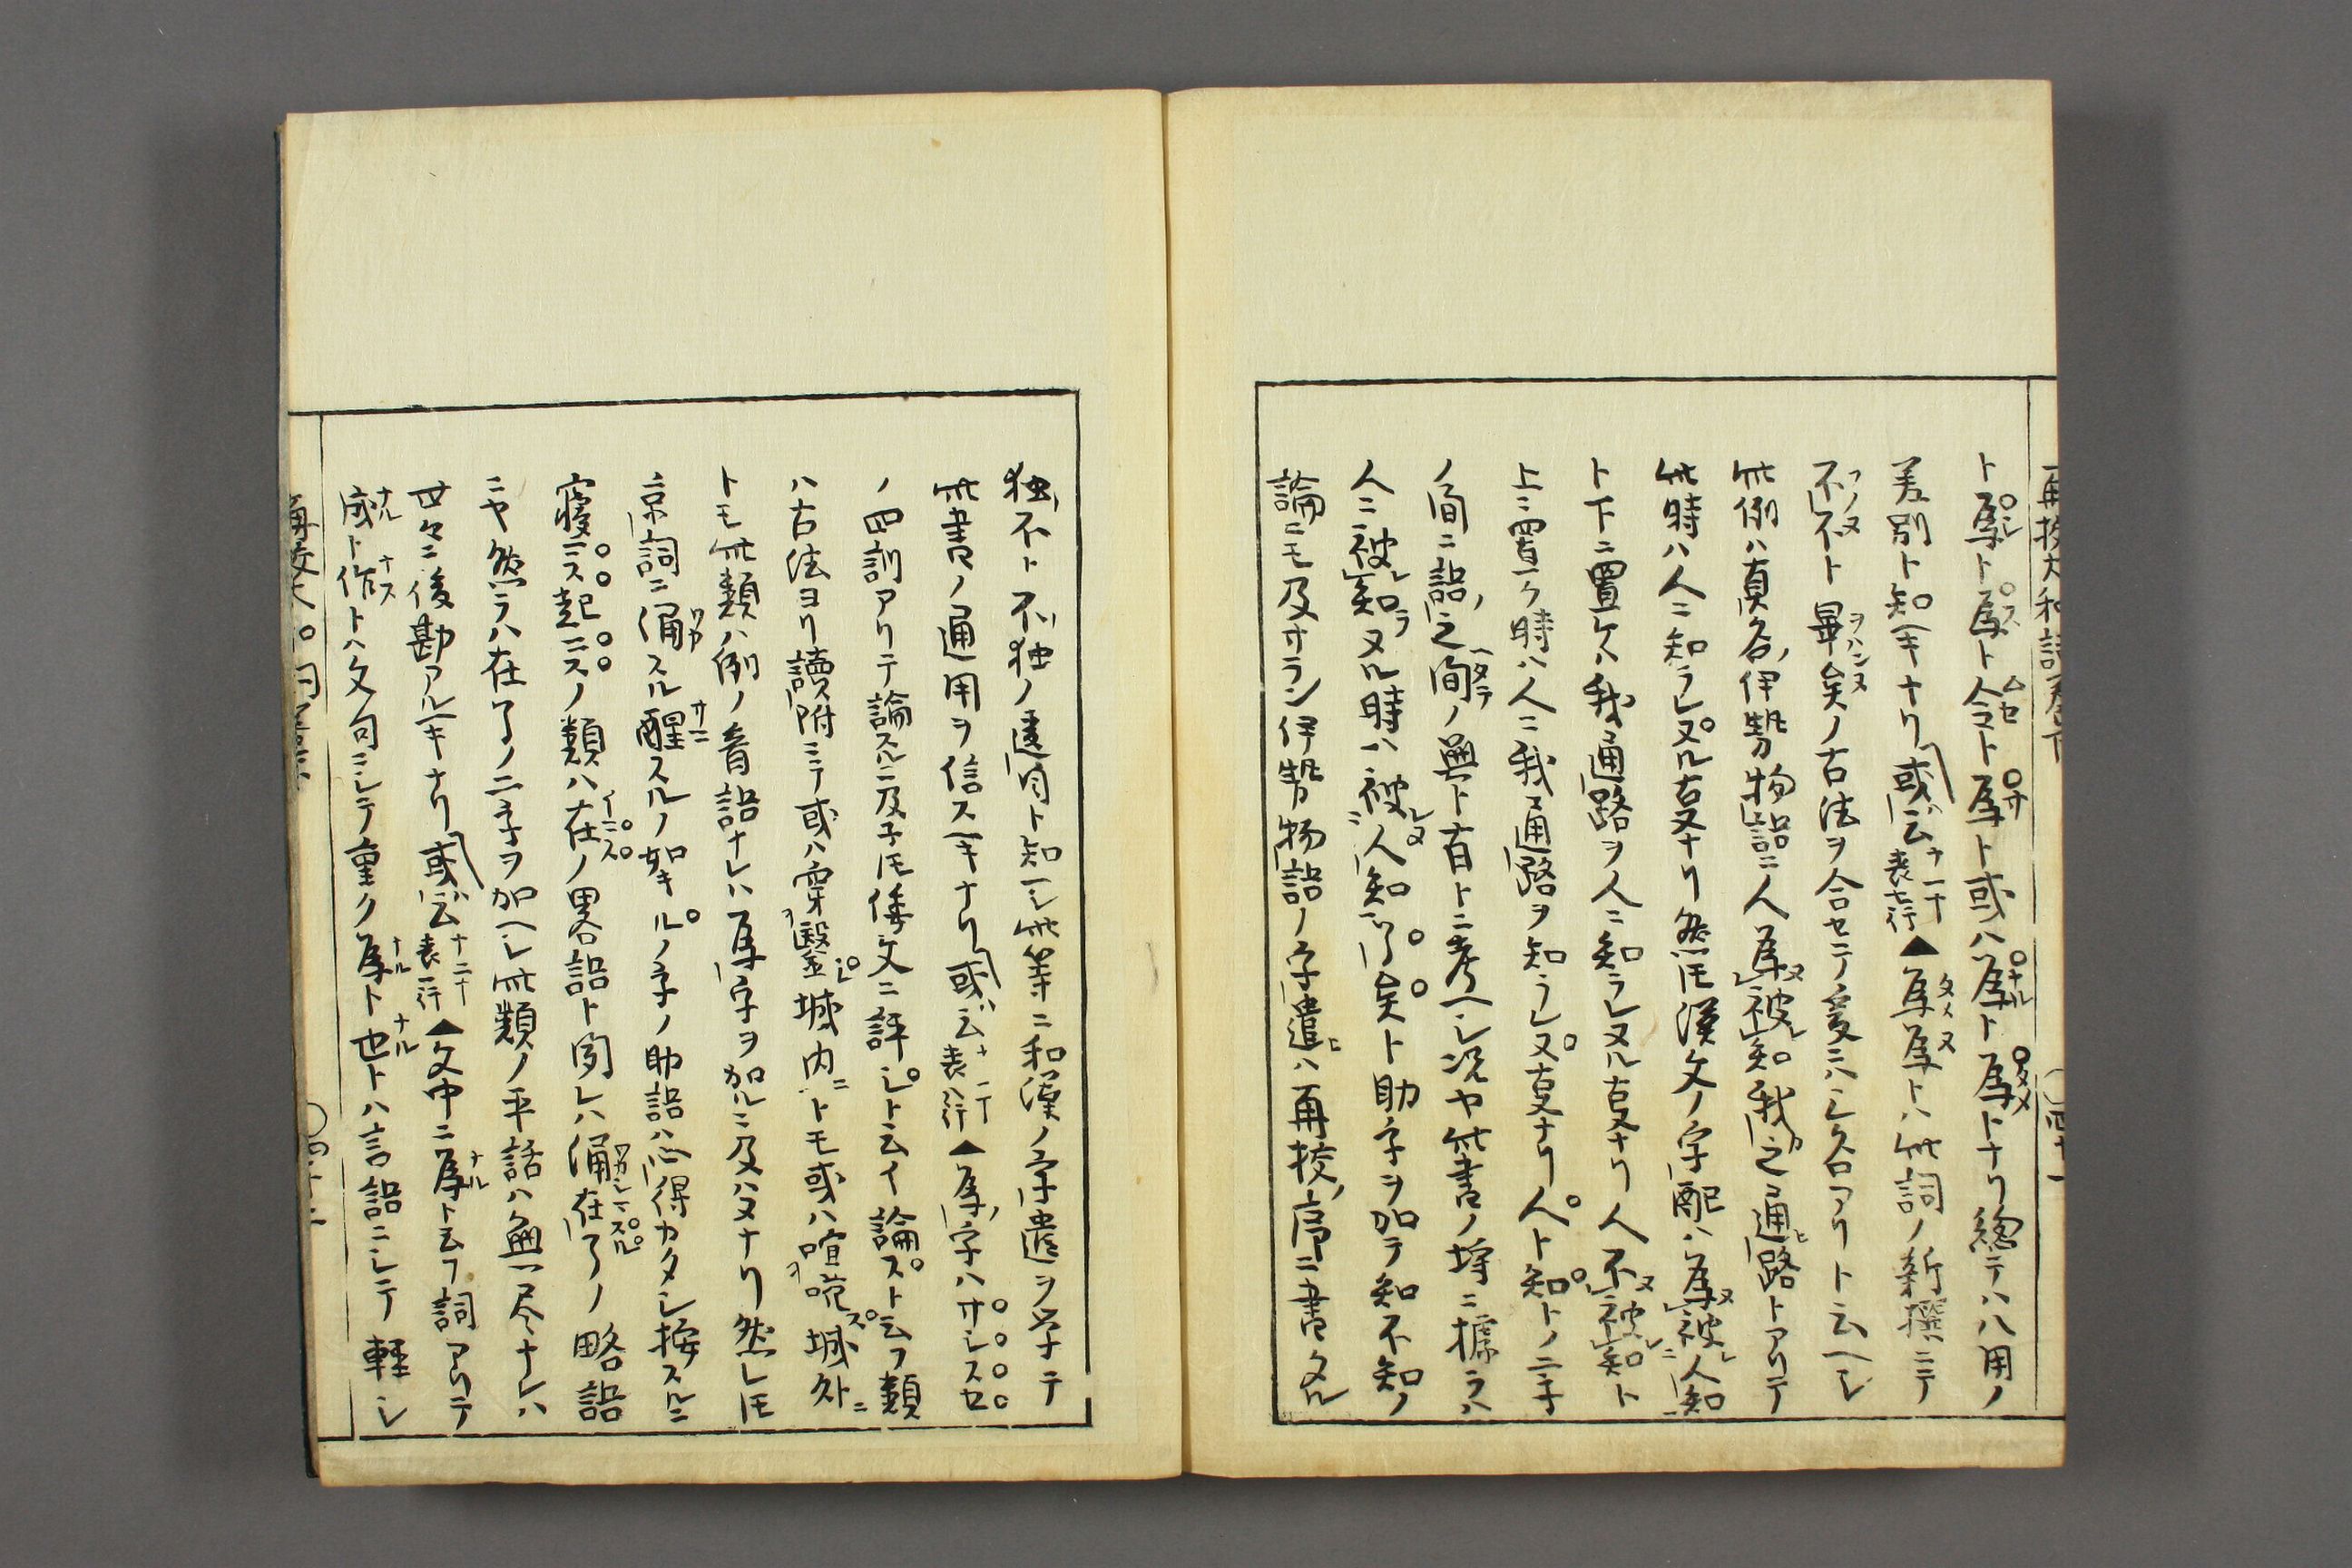 ト為ト為ト令ト為ト或ハ為ト為トナリ総テハ八用ノ
差別ト知ヘキナリ或云 表七行 ▲為為トハ此詞ノ新撰ニテ
不不ト畢矣ノ古法ヲ合セテノ爰ニハシクロアリト云ヘシ
此例ハ真名伊勢物語ニ人為被知我之通路トアリテ
此時ハ人ニ知ラレヌル支ナリ然モ漢文ノ字配ハ為被人知
ト下ニ置ケハ我通路ヲ人ニ知ラレヌル支ナリ人不被知ト
上ニ置ク時ハ人ニ我通路ヲ知ラレヌ支ナリ人ト知トノ二字
ノ間ニ語之間ノ無ト有トニ考ヘシ况ヤ此書ノ埒ニ據ラハ
人ニ被知ヌル時ハ被人知了矣ト助字ヲ加テ知不知ノ
論ニモ及サラン伊勢物語ノ字遣ハ再挍序ニ書タル
独不ト不独ノ違目ト知ヘシ此等ニ和漢ノ字遣ヲ学テ
此書ノ通用ヲ信スヘキナリ或云 表八行 ▲為字ハサシスセ
ノ四訓アリテ論スルニ及子モ倭文ニ評シト云イ論スト云フ類
ハ古法ヨリ讀附ニテ或ハ穿鑿城内ニトモ或ハ喧嘩城外ニ
トモ此類ハ例ノ音語ナレハ為字ヲ加ルニ及ハヌナリ然レモ
京詞ニ涌スル醒スルノ如キルノ字ノ助語ハ心得カタシ按スルニ
寢ニス起ニスノ類ハ在ノ畧語ト聞レハ涌在了ノ略語
ニヤ然ラハ在了ノ二字ヲ加ヘシ此類ノ平話ハ無尽ナレハ
世々ニ後勘アルヘキナリ或云 表一行 ▲文中ニ為ト云フ詞アリテ
成ト作トハ文句ニシテ重ク為ト也トハ言語ニシテ軽シ